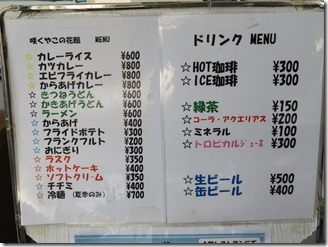 咲くやこの花館 MENU
☆カレーライス ¥600
☆カツカレー ¥800
☆エビフライカレー ¥800
☆からあげカレー ¥800
☆きつねうどん ¥600
☆かきあげうどん ¥600
☆ラーメン ¥600
☆からあげ ¥400
☆フライドポテト ¥300
☆フランクフルト ¥200
☆おにぎり ¥300
☆ラスク ¥350
☆ホットケーキ ¥400
☆ソフトクリーム ¥350
☆チヂミ ¥400
☆冷麺 (夏季のみ) ¥700
ドリンク MENU
☆HOT珈琲 ¥300
☆ICE珈琲 ¥300
☆緑茶 ¥150
☆コーラ・アクエリアス ¥200
☆ミネラル ¥100
☆トロピカルジュース ¥300
☆生ビール ¥500
☆缶ビール ¥400